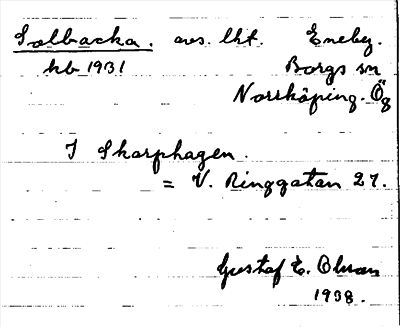 Solbacka. avs. lht. Eneby.
kb 1931 Borgs sn
Norrköping. Ög
I Skarphagen.
= V. Ringgatan 27.
Gustaf E. Olsson
1938.